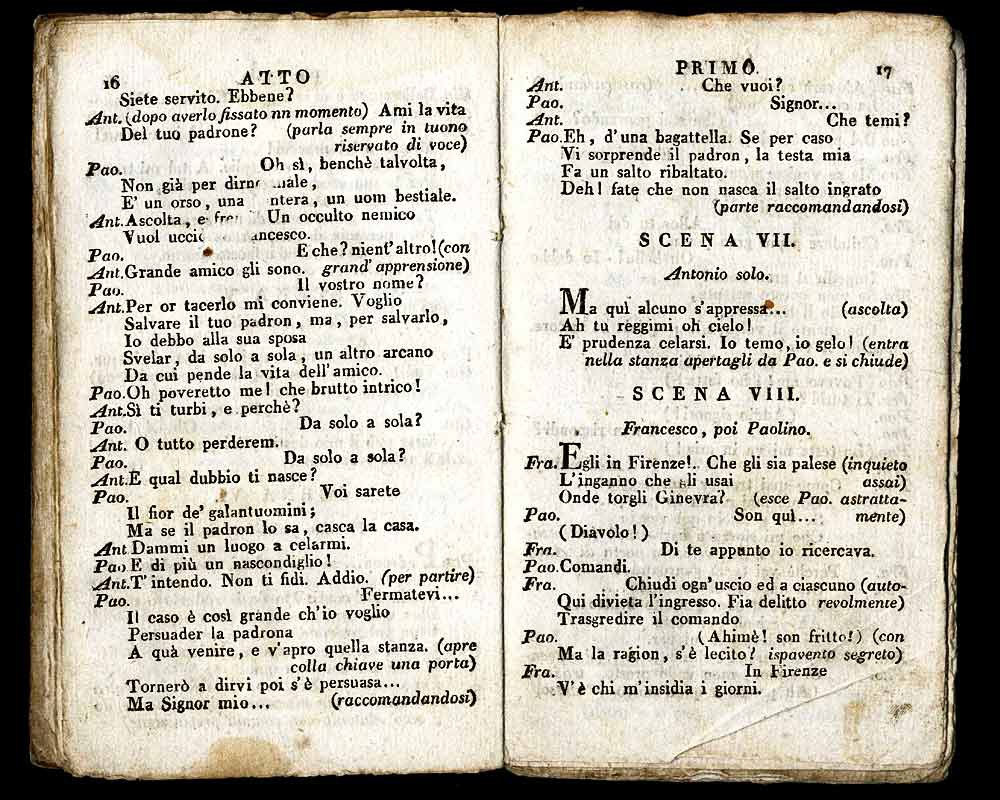 16 ATTO
Siete servito. Ebbene?
Ant. (dopo averlo fissato nn momento) Ami la vita
Del tuo padrone? (parla sempre in tuono
riservato di voce)
Pao. Oh sì, benchè talvolta,
Non già per dirne male,
E' un orso, una ntera, un uom bestiale.
Ant. Ascolta, e Un occulto nemico
Vuol ancesco.
Pao. E che? nient'altro! (con
Ant. Grande amico gli sono. grand' apprensione)
Pao. Il vostro nome?
Ant. Per or tacerlo mi conviene. Voglio
Salvare il tuo padron, ma, per salvarlo,
Io debbo alla sua sposa
Svelar, da solo a sola, un altro arcano
Da cui pende la vita dell'amico.
Pao. Oh poveretto me! che brutto intrico!
Ant. Sì ti turbi, e perchè?
Pao. Da solo a sola?
Ant. O tutto perderem.
Pao. Da solo a sola?
Ant. E qual dubbio ti nasce?
Pao. Voi sarete
Il fior de' galantuomini;
Ma se il padron lo sa, casca la casa.
Ant Dammi un luogo a celarmi.
Pao E di più un nascondiglio!
Ant. T' intendo. Non ti fidi. Addio. (per partire)
Pao. Fermatevi...
Il caso è così grande ch'io voglio
Persuader la padrona
A quà venire, e v'apro quella stanza. (apre
colla chiave una porta)
Tornerò a dirvi poi s'è persuasa...
Ma Signor mio... (raccomandandosi)
PRIMO. 17
Ant. Che vuoi?
Pao. Signor...
Ant. Che temi?
Pao. Eh, d'una bagattella. Se per caso
Vi sorprende il padron, la testa mia
Fa un salto ribaltato.
Deh! fate che non nasca il salto ingrato
(parte raccomandandosi)
SCENA VII.
Antonio solo.
Ma quì alcuno s'appressa... (ascolta)
Ah tu reggimi oh cielo!
E' prudenza celarsi. Io temo, io gelo! (entra
nella stanza apertagli da Pao. e si chiude)
SCENA VIII.
Francesco, poi Paolino.
Fra. Egli in Firenze!.. Che gli sia palese (inquieto
L'inganno che gli usai assai)
Onde torgli Ginevra? (esce Pao. astratta-
Pao. Son quì... mente)
(Diavolo!)
Fra. Di te appunto io ricercava.
Pao. Comandi.
Fra. Chiudi ogn'uscio ed a ciascuno (auto-
Qui divieta l'ingresso. Fia delitto revolmente)
Trasgredire il comando
Pao. (Ahimè! son fritto!) (con
Ma la ragion, s'è lecito? ispavento segreto)
Fra. In Firenze
V'è chi m'insidia i giorni.